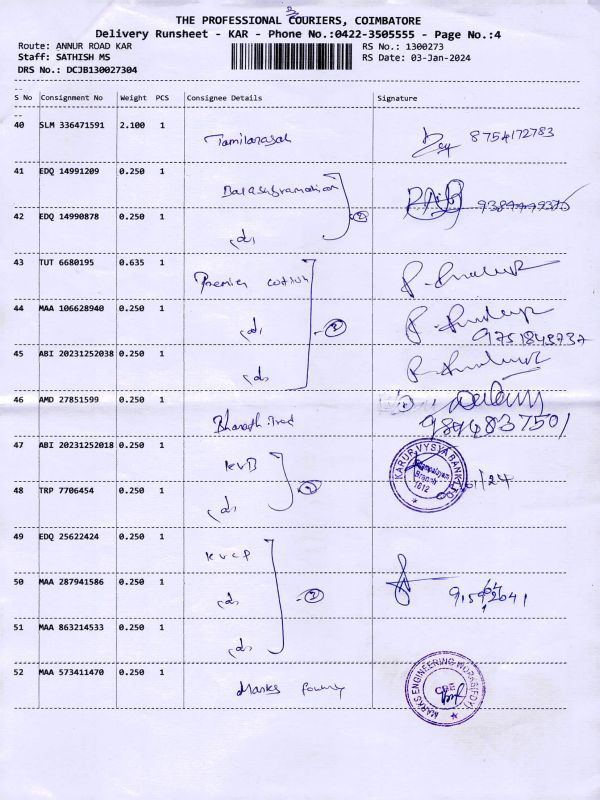 3
THE PROFESSIONAL COURIERS, COIMBATORE
Delivery Runsheet - KAR - Phone No.:0422-3505555 - Page No.:4
Route: ANNUR ROAD KAR
RS No.: 1300273
Staff: SATHISH MS
RS Date: 03-Jan-2024
DRS No.: DCJB130027304
S No Consignment No Weight PCS Consignee Details Signature
40 SLM 336471591 2.100 1
Tamilarasan 8754172783
41 EDQ 14991209 0.250 1
Balasubramanian
42 EDQ 14990878 0.250 1
do 2
43 TUT 6680195 0.635 1
Premier cotton
44 MAA 106628940 0.250 1
do 9751848737
45 ABI 20231252038 0.250 1
do
46 AMD 27851599 0.250 1
Bharath 9894837501
47 ABI 20231252018 0.250 1
KVB
KARUR VYSYA BANK LTD
Branch
1612
48 TRP 7706454 0.250 1
do
49 EDQ 25622424 0.250 1
KVCP
50 MAA 287941586 0.250 1
do
51 MAA 863214533 0.250 1
do
52 MAA 573411470 0.250 1
Marks
MARKS ENGINEERING WORKS
CBE